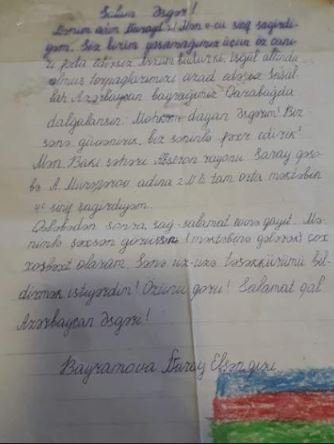 Salam Əsgər!
Mənim adım Nuraydır! Mən 4-cü sinif şagirdi-
yəm. Siz bizim yaşamağımız üçün öz canı-
nı fəda edirsiz. Arzum budurki, işğal altında
olmuş torpaqlarımızı azad edəsiz. İnşal-
lah Azərbaycan bayrağımız Qarabağda
dalğalansın. Möhkəm dayan Əsgərim! Biz
sənə güvənirik, biz səninlə fəxr edirik!
Mən, Bakı şəhəri Abşeron rayonu Saray qəsə-
bə A. adına 2 № tam orta məktəbin
4ᶜ sinif şagirdiyəm.
Qələbədən sonra, sağ-salamat evinə qayıt. Mə-
nimlə şəxsən görüşsən (məktəbimə gələrək) çox
xoşbəxt olaram. Sənə üz-üzə təşəkkürümü bil-
dirmək istəyərdim! Özünü qoru! Salamat qal
Azərbaycan Əsgəri!
Bayramova Nuray Elşən qızı